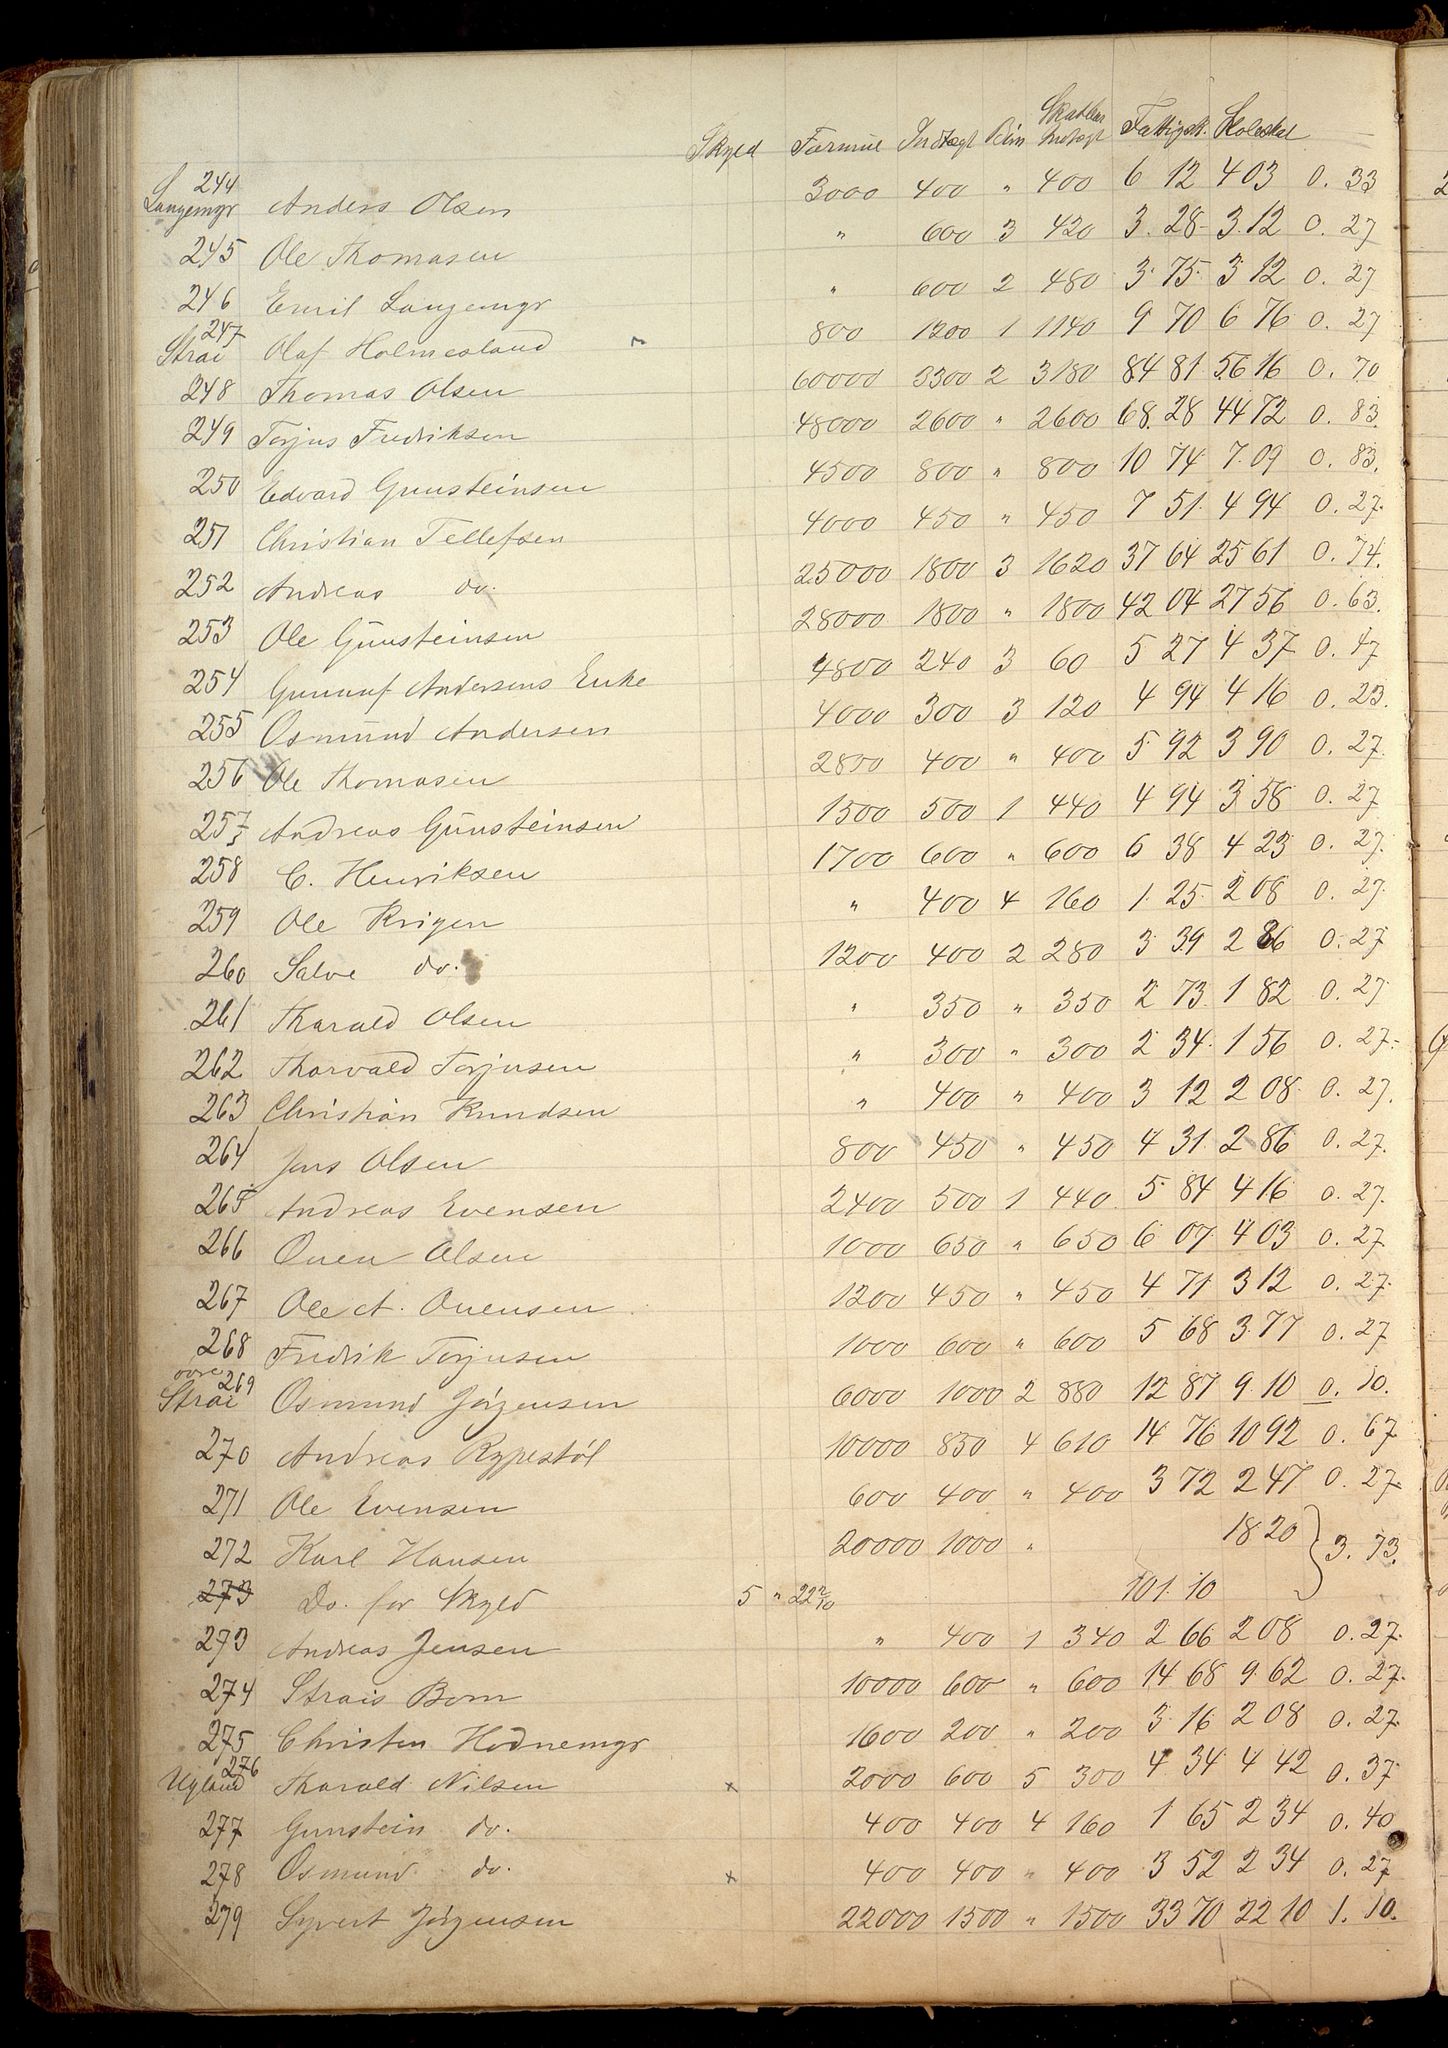 Skyld Formue Indtægt Skatbar Indtægt Fattigsk. Skoleskat
244 Langemyr Anders Olsen 3000 400 " 400 6 12 4 03 0. 33
245 Ole Thomasen " 600 3 420 3. 28 3. 12 0. 27
246 Emil Langemyr " 600 2 480 3. 75 3 12 0. 27
247 Strai Olaf Holmesland 800 1200 1 1140 9 70 6 76 0. 27
248 Thomas Olsen 60000 3300 2 3180 84 81 56 16 0. 70
249 Torjus Fredriksen 48000 2600 " 2600 68. 28 44 72 0. 83.
250 Edvard Gunsteinsen 4500 800 " 800 10 74 7. 09 0. 83.
251 Christian Tellefsen 4000 450 " 450 7 51. 4 94 0. 27.
252 Andreas do. 25000 1800 3 1620 37 64 25 61 0. 74.
253 Ole Gunsteinsen 28000 1800 " 1800 42 04 27 56 0. 63.
254 Gunuf Andersens Enke 4800 240 3 60 5 27 4 37 0. 47
255 Osmund Andersen 4000 300 3 120 4 94 4 16 0. 23.
256 Ole Thomasen 2800 400 " 400 5 92 3 90 0. 27.
257 Andreas Gunsteinsen 1500 500 1 440 4 94 3 58 0. 27
258 C. Henriksen 1700 600 " 600 6 38 4 23 0. 27.
259 Ole Krigen " 400 4 160 1. 25 2 08 0. 27.
260 Salve do. 1200 400 2 280 3 39 2 86 0. 27
261 Tharald Olsen " 350 " 350 2 73. 1 82 0. 27
262 Thorvald Torjusen " 300 " 300 2 34. 1 56 0. 27.
263 Christian Knudsen " 400 " 400 3 12 2 08. 0. 27.
264 Jens Olsen 800 450 " 450 4 31. 2 86 0. 27.
265 Andreas Evensen 2400 500 1 440 5 84 4 16 0. 27.
266 Ouen Olsen 1000 650 " 650 6 07 4 03 0. 27.
267 Ole A. Ouensen 1200 450 " 450 4 71 3 12 0. 27.
268 Fredrik Torjusen 1000 600 " 600 5 68 3. 77 0. 27
269 øvre Strai Osmund Jørgensen 6000 1000 2 880 12 87 9. 10 0. 10.
270 Andreas Rypestøl 10000 850 4 610 14 76 10 92 0. 67
271 Ole Evensen 600 400 " 400 3 72 2 47 0. 27
272 Karl Hansen 20000 1000 " 18 20 3. 73.
273 Do. for Skyld 5 " 22 2/10 101. 10
273 Andreas Jensen " 400 1 340 2 66 2 08 0. 27.
274 Strais Bom 10000 600 " 600 14 68 9. 62 0. 27.
275 Christen Hodnemyr 1600 200 " 200 3. 16 2 08 0. 27.
276 Ugland Tharald Nilsen x 2000 600 5 300 4 34 4 42 0. 37
277 Gunstein do. 400 400 4 160 1 65 2 34 0. 40
278 Osmund do. x 400 400 " 400 3 52 2 34 0. 27
279 Syvert Jørgensen 22000 1500 " 1500 33 70 22 10 1. 10.